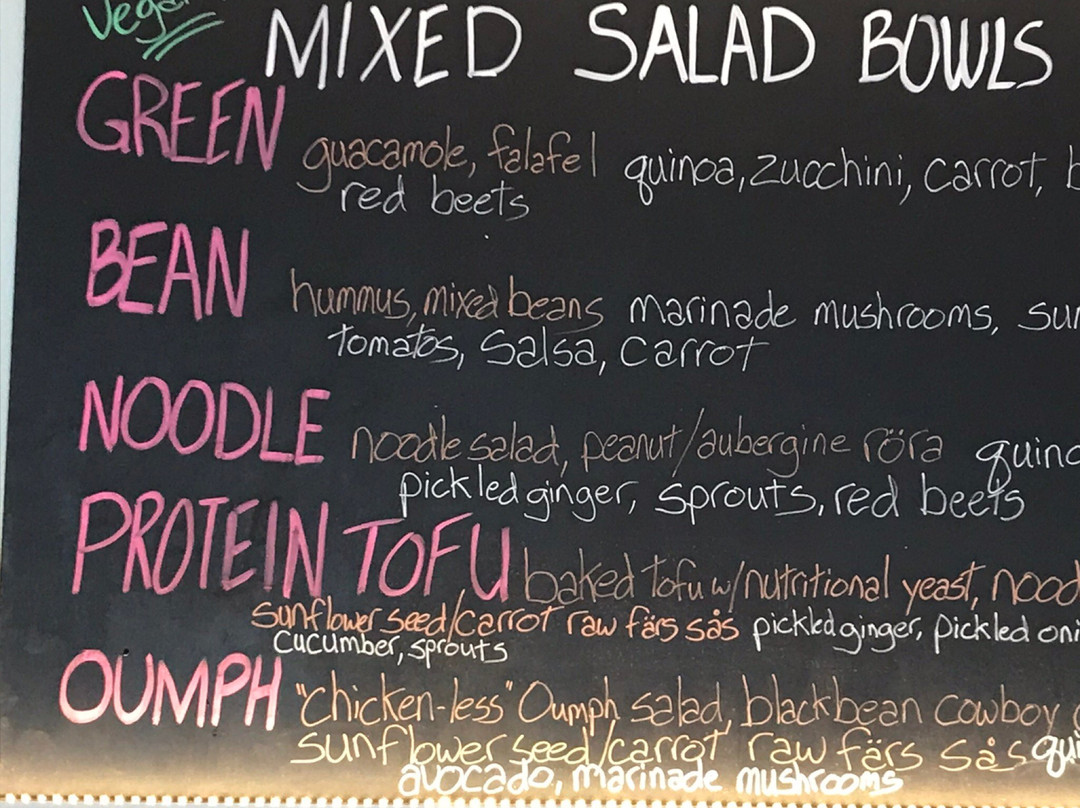 Vegan
MIXED SALAD BOWLS
GREEN guacamole, falafel quinoa, zucchini, carrot,
red beets
BEAN hummus, mixed beans marinade mushrooms,
tomatos, salsa, carrot
NOODLE noodle salad, peanut/aubergine röra
pickled ginger, sprouts, red beets
PROTEIN TOFU baked tofu w/nutritional yeast,
sunflower seed/carrot raw färs sås pickled ginger, pickled
cucumber, sprouts
OUMPH "chicken-less" Oumph salad, blackbean cowboy
sunflower seed/carrot raw färs sås
avocado, marinade mushrooms